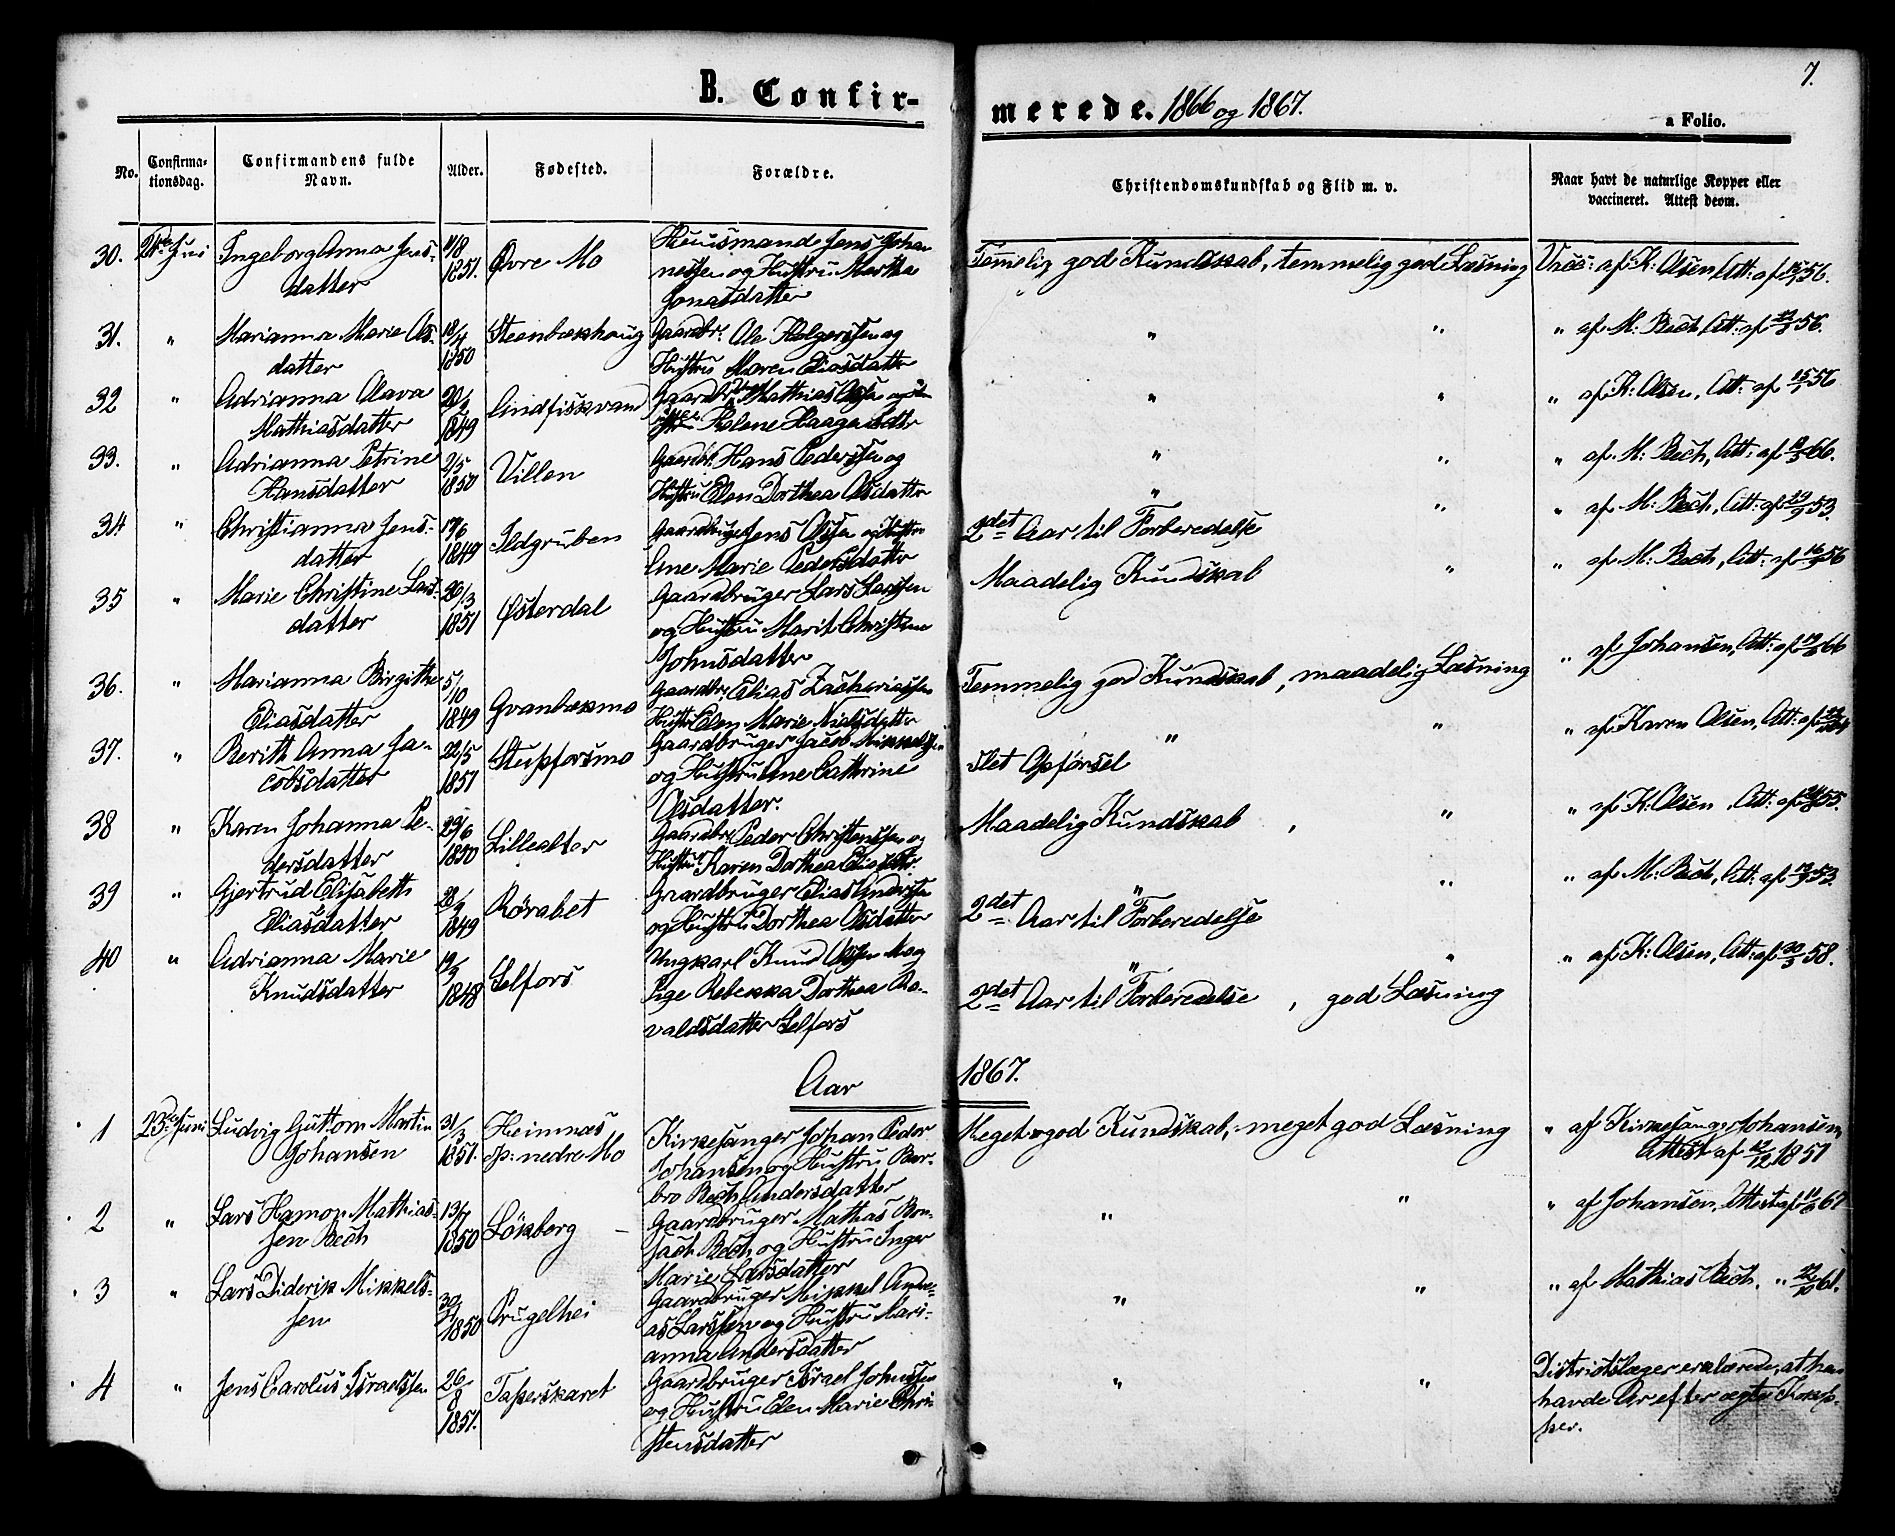 B. Confir-
merede. 1866 og 1867.
7.
a Folio.
No.
Confirma-
tionsdag.
Confirmandens fulde
Navn.
Alder.
Fødested.
Forældre.
Christendomskundskab og Flid m. v.
Naar havt de naturlige Kopper eller
vaccineret. Attest derom.
30. 24de Juni Ingeborg Anna Jens-
datter
11/8
1851.
Øvre Mo
Huusmand Jens Johan-
nessen og Hustru Martha
Jonasdatter
Temmelig god Kundskab, temmelig god Læsning
Vacc: af K: Olsen, Att: af 56.
31. " Marianna Marie Ols-
datter
18/4
1850
Steenbækhaug
Gaardbr. Ole Holgerssen og
Hustru Maren Eliasdattr
" " " af M: Bech, Att: af 56.
32 " Adrianna Olava
Mathiasdatter
1849
Andfiskvand
Gaardbr. Mathias Olsen
Helene
" " " af K: Olsen, Att: af 15/7 56
33. " Adrianna Petrine
Hansdatter
2/5
1850
Villen
Gaardbr. Hans Pederssen og
Hustru Elen Dorthea Olsdattr
" " " af M: Bech, Att: af 66.
34 " Christianna Jens-
datter
17/6
1849
Ildgruben
Gaardbruger Jens Olssen og Hustru
Ane Marie Pedersdatter
"
2det Aar til Forberedelse
" " af M: Bech, Att: af 53.
35 " Marie Christine Lars-
datter
20/3
1851
Østerdal
Gaardbruger Lars Larssen
og Hustru Marit Christine
Johnsdatter
Maadelig Kundskab
" " af M: Bech, Att: af 56
36. " Marianna Birgithe
Eliasdatter
5/10
1849
Gvanbækmo
Gaardbr. Elias Zachariassen
Hustru Elen Marie Nielsdatter
Temmelig god Kundskab, maadelig Læsning
" af Johansen, Att: af 66
37. " Berith Anna Ja-
cobsdatter
22/5
1851
Stupforsmo
Gaardbruger Jacob Mikkelsen
og Hustru Ane Cathrine
Olsdatter.
"
slet Opførsel
" " af Karen Olsen, Att: af
38 " Karen Johanna Pe-
dersdatter
29/6
1850
Lillealter
Gaardbr. Peder Christenssen og
Hustru Karen Dorthea
Maadelig Kundskab , "
" af K: Olsen, Att: af 55.
39 " Gjertrud Elisabeth
Eliasdatter
1849
Rørabet
Gaardbruger Elias Anderssen
og Hustru Dorthea Olsdatter
"
2det Aar til Forberedelse
" " af M: Bech, Att: af 53.
40 " Adrianna Marie
Knudsdatter
1848
Selfors
Ungkarl Knud Olssen Mo og
Pige Rebekka Dorthea Ro-
valdsdatter Selfors
"
2det Aar til Forberedelse , god Læsning
" " af K: Olsen, Att: af 58.
Aar 1867.
1 23de Juni Ludvig Guttorm Martin
Johansen
31/3
1851.
Heimnæs
p: nedre Mo
Kirkesanger Johan Peder
Johansen og Hustru Bar-
bro Bech Andersdatter
Meget god Kundskab, meget god Læsning
" af Kirkesanger Johansen,
Attest af 12/12 1851
2 " Lars Hamon Mathias-
sen Bech
13/7
1850
Løkberg
Gaardbruger Mathias Bon-
sach Bech og Hustru Inger
Marie Larsdatter
" " " af Johansen, Attest af 67
3 " Lars Diderik Mikkels-
sen
1850
Brugelhei
Gaardbruger Mikkel Andre-
as Larssen og Hustru Mari-
anna Andersdatter
" " " af Mathias Bech, "
4 " Jens Carolus Israelssen
26/8
1851.
Tapperskaret
Gaardbruger Israel Johnssen
og Hustru Elen Marie Chri-
stensdatter
" "
Districtslæger erklærede, at han
havde Ar efter ægte Kop-
per.